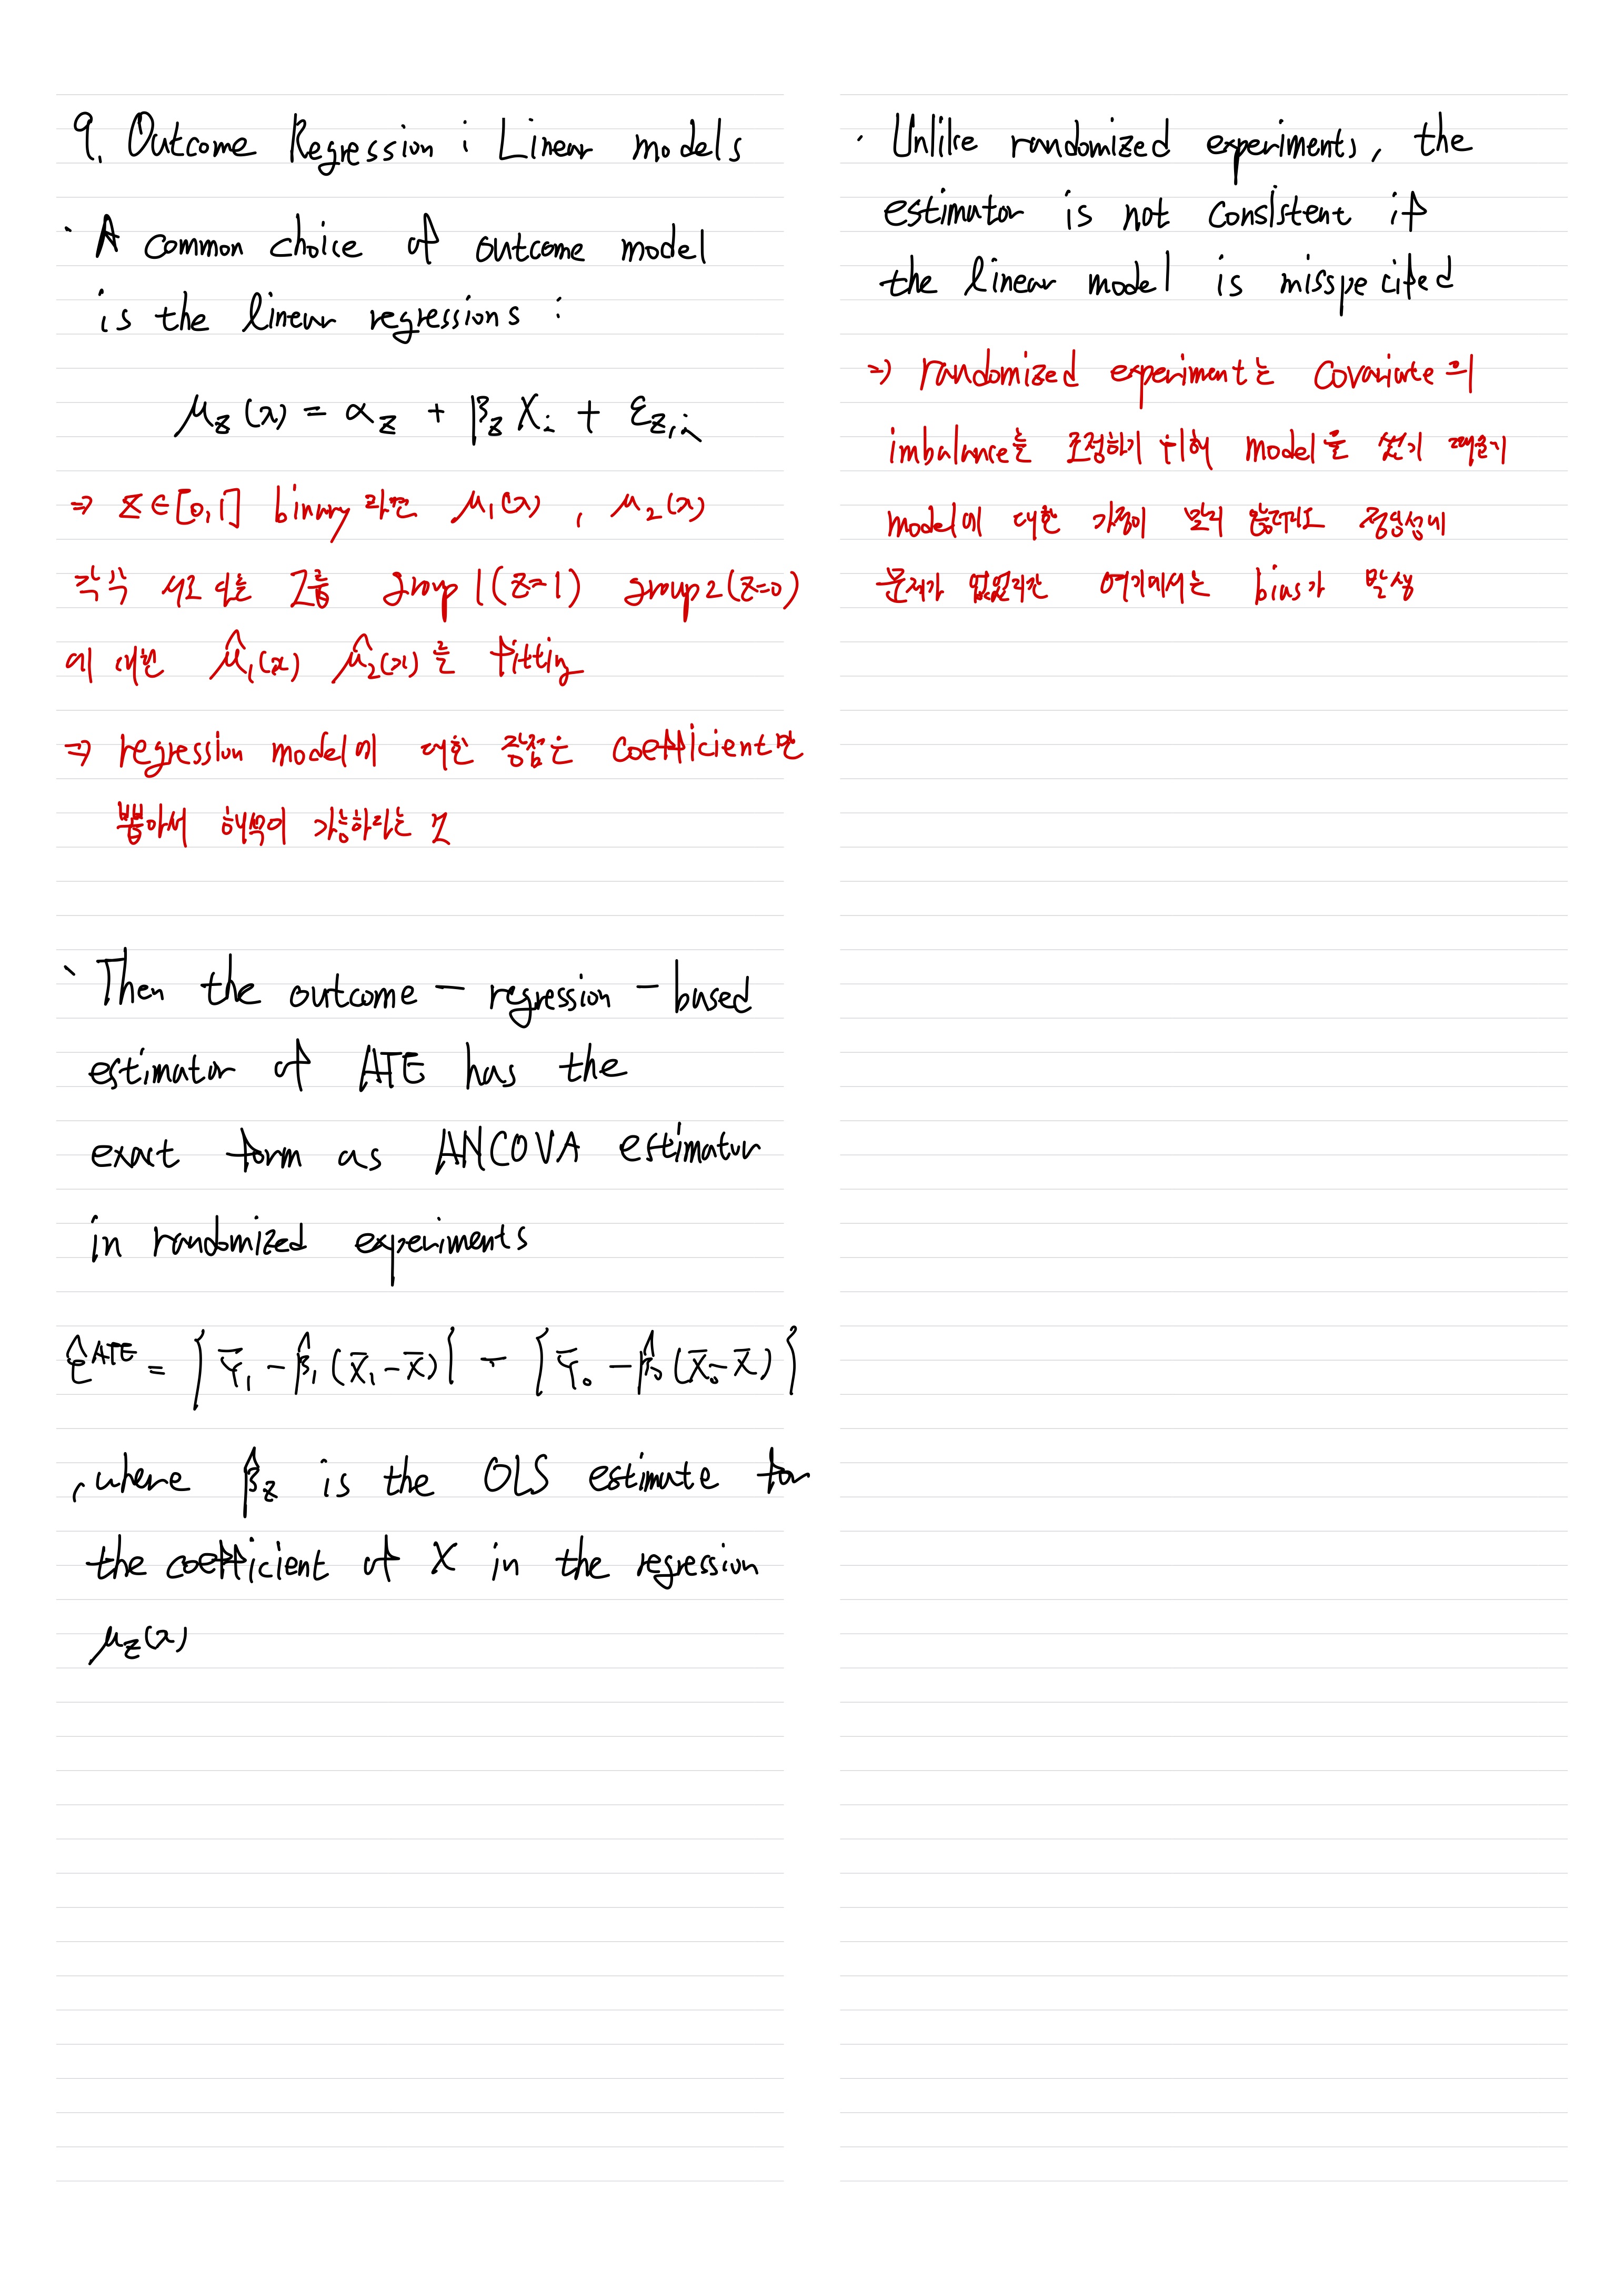 9. Outcome Regression : Linear models
· A common choice of outcome model
is the linear regressions :
μ_z(x) = α_z + β_z X_i + ε_z,i
⇒ Z∈[0,1] binary 라면 μ_1(x) , μ_2(x)
각각 서로 다른 그룹 group 1(Z=1) group 2(Z=0)
에 대한 μ̂_1(x) μ̂_2(x)를 fitting
⇒ regression model에 대한 장점은 coefficient만
뽑아서 해석이 가능하다는 것
· Then the outcome - regression - based
estimator of ATE has the
exact form as ANCOVA estimator
in randomized experiments
τ̂^ATE = {Ȳ_1 - β̂_1(X̄_1 - X̄)} - {Ȳ_0 - β̂_0(X̄_0 - X̄)}
, where β̂_z is the OLS estimate for
the coefficient of X in the regression
μ_z(x)
· Unlike randomized experiments, the
estimator is not consistent if
the linear model is misspecified
⇒ randomized experiment는 covariate의
imbalance를 조정하기 위해 model을 썼기 때문에
model에 대한 가정이 맞지 않더라도 정당성에
문제가 없었지만 여기에서는 bias가 발생